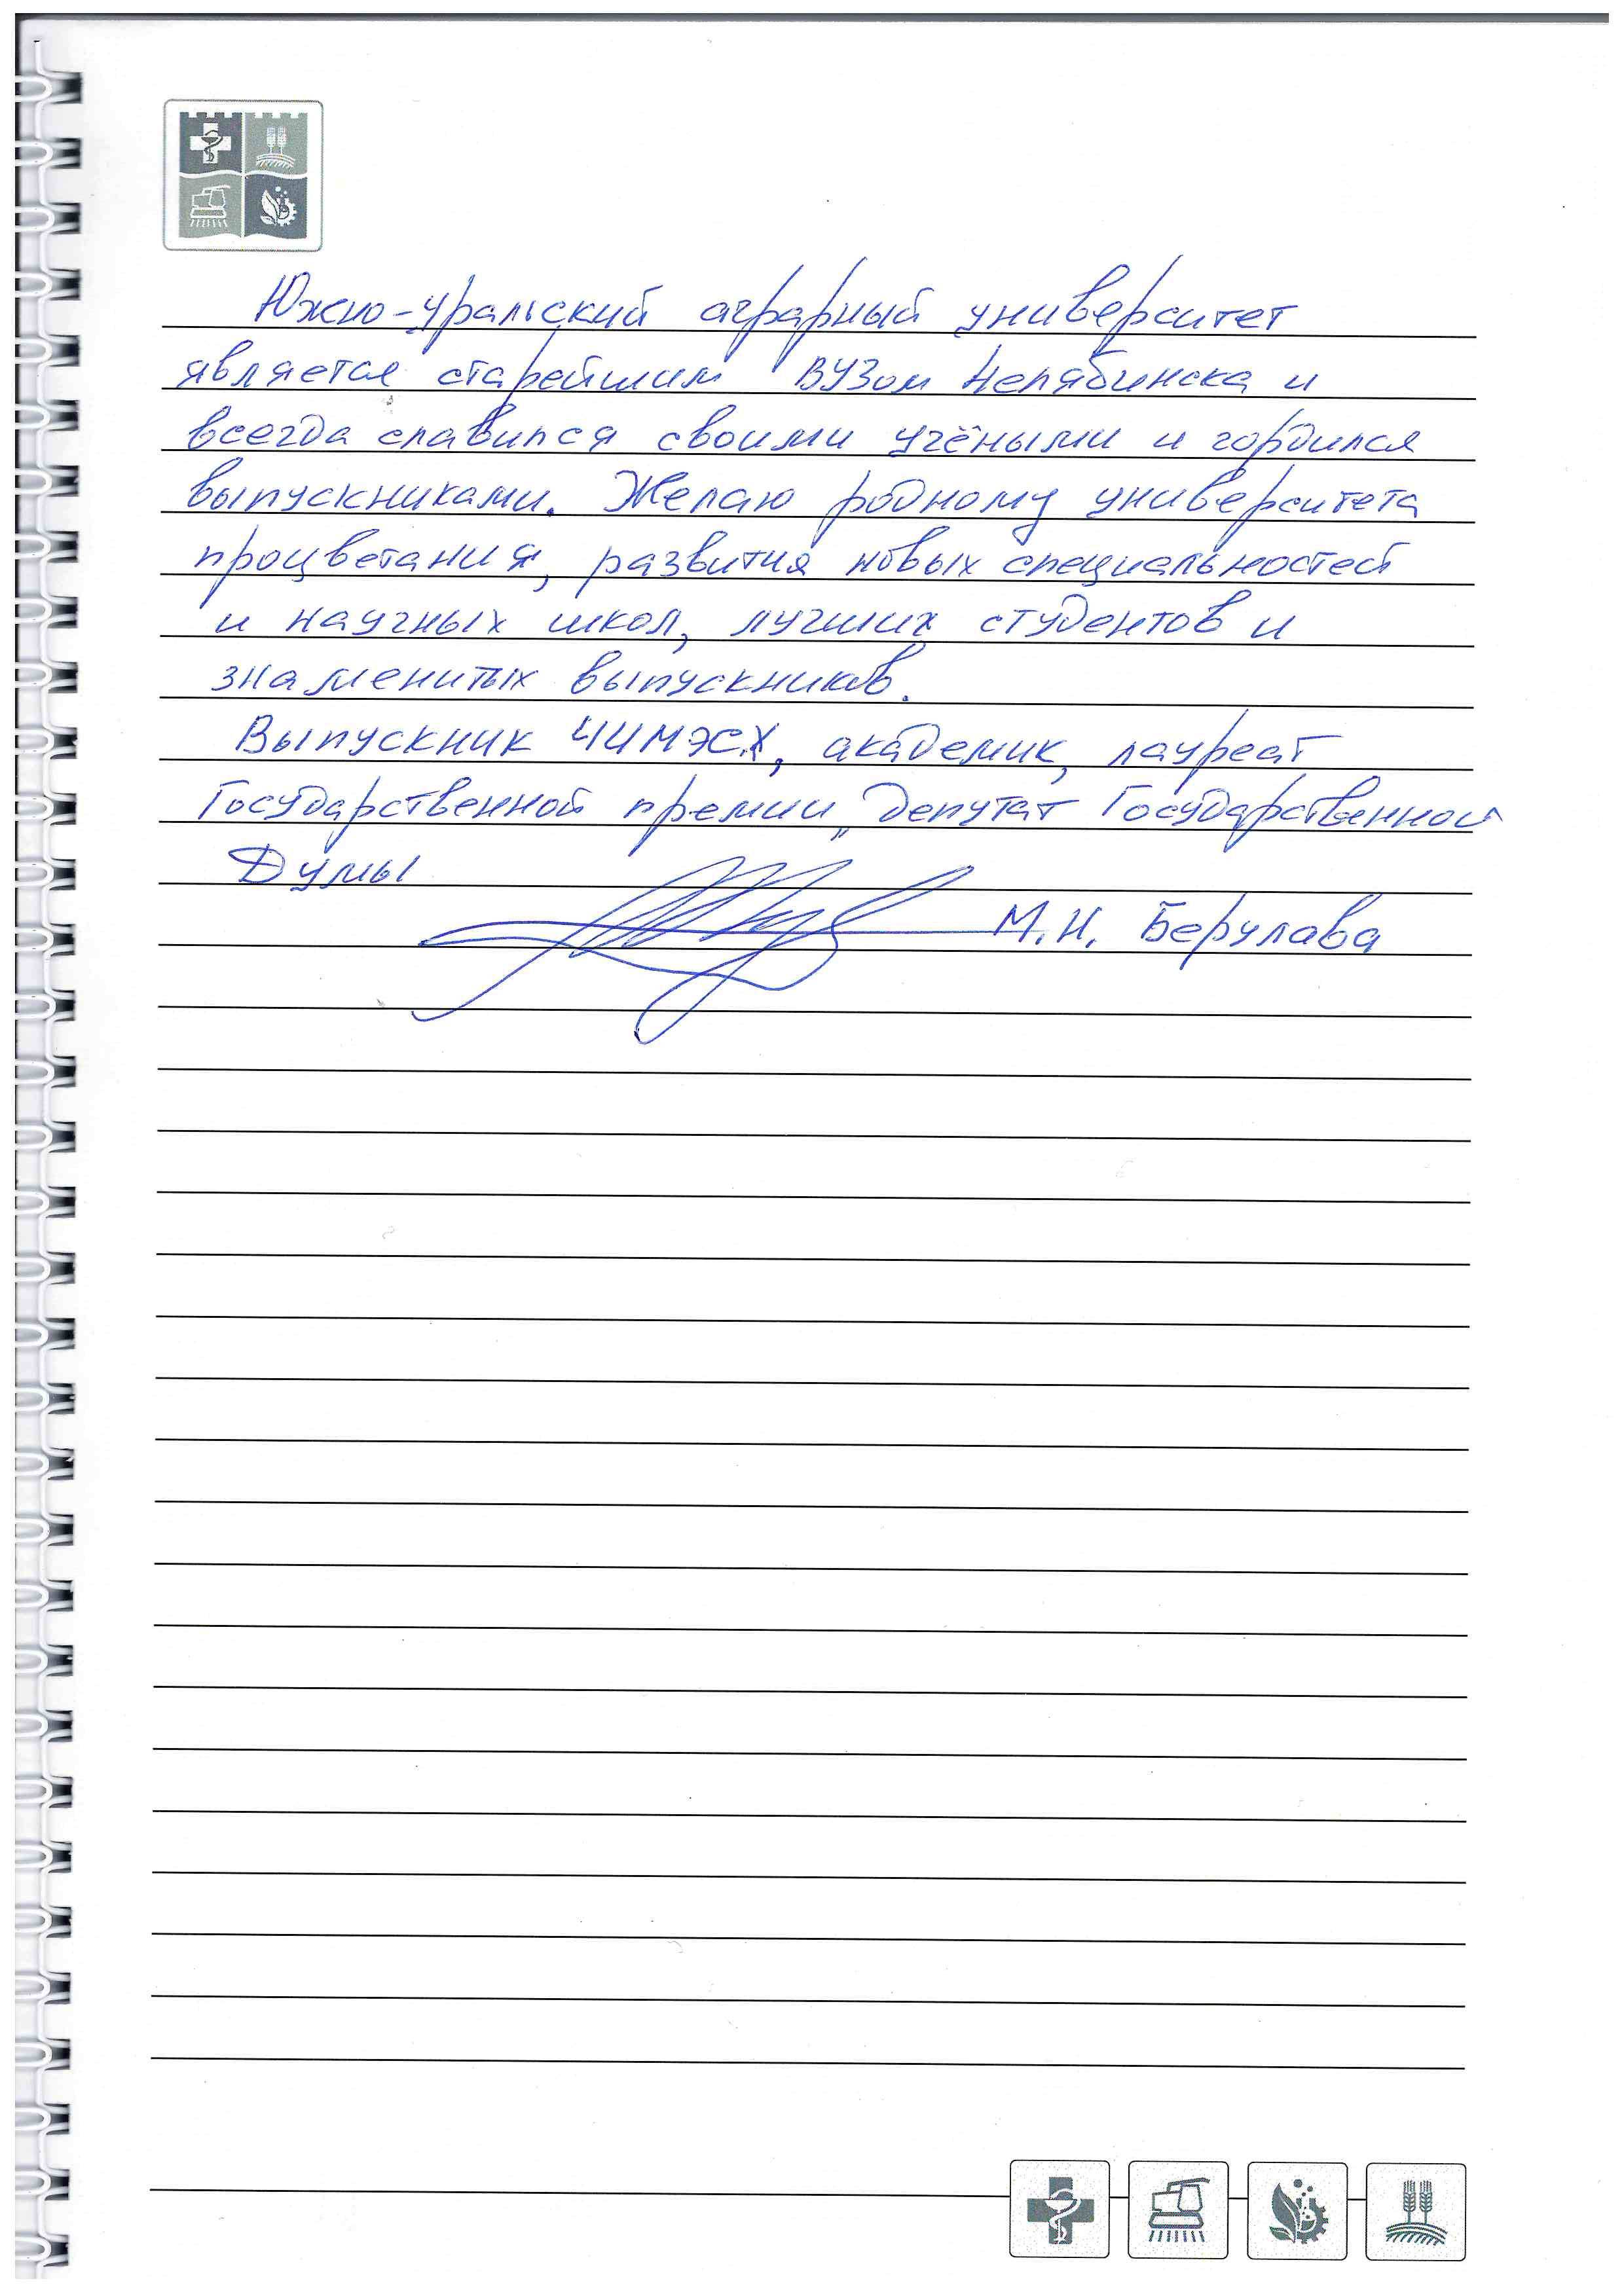 Южно-Уральский аграрный университет
является старейшим ВУЗом Челябинска и
всегда славился своими учёными и гордился
выпускниками. Желаю родному университета
процветания, развития новых специальностей
и научных школ, лучших студентов и
знаменитых выпускников.
Выпускник ЧИМЭСХ, академик, лауреат
Государственной премии, депутат Государственной
Думы
М.Н. Берулава